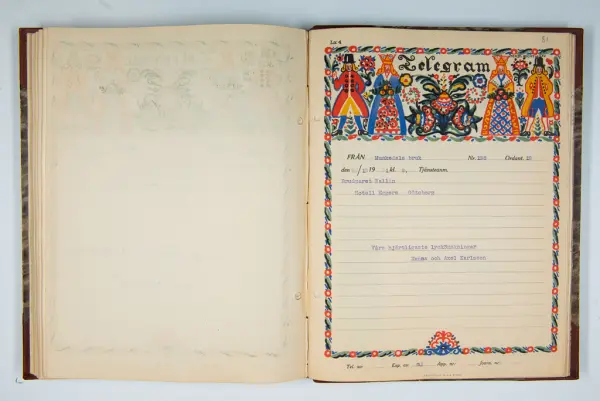 Lx 4
Telegram
FRÅN Munkedals bruk Nr. Ordant.
den 19 kl. Tjänsteanm.
Brudparet Wallin
Hotell Eggers Göteborg
Våra hjärtligaste lyckönskningar
och Axel Karlsson
Tel. nr Exp. nr App. nr Journ. nr